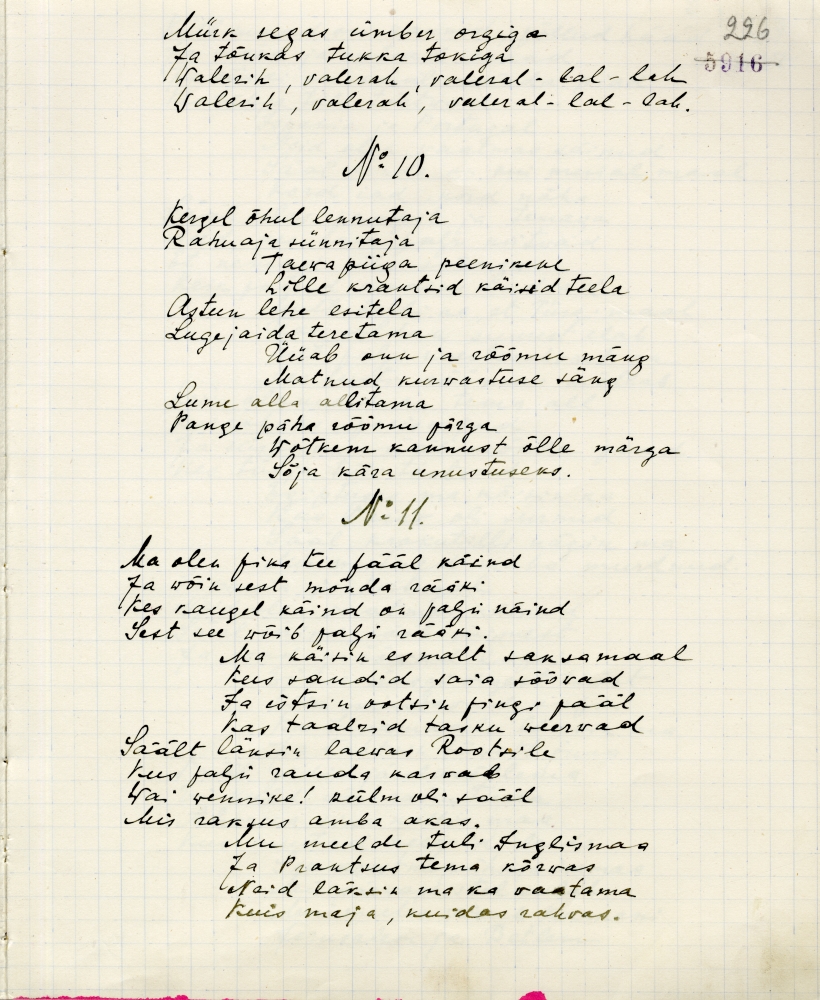 Mürk segas ümber orgiga
226
Ja tõukas tukka tokiga
5916
Walerih, valerah, valeral-lal-lah
Walerih, valerah, valeral-lal-lah.
No 10.
Kergel õhul lennutaja
Rahuaja sünnitaja
Taewa piiga peenikene
Lille krantsid käisid teela
Astun lehe esitela
Lugejaida teretama
Hüüab onn ja rõõmu mäng
Matnud kurwastuse säng
Lume alla allitama
Pange pähä rõõmu pärga
Wõtkem kannust õlle märga
Sõja kära unustuseks.
No 11.
Ma olen pika tee pääl käind
Ja wõin sest mõnda rääki
Kes kaugel käind on paljü näind
Sest see wõib paljü rääki.
Ma käisin esmalt saksamaal
Kus sandid saia söövad
Ja istsin ootsin pingi pääl
Kas taalrid tasku weerwad
Säält läksin laewas Rootsile
Kus paljü rauda kaswab
Wai wennike! külm oli sääl
Mis raksus amba akas.
Mu meelde tuli Inglismaa
Ja Prantsus tema kõrwas
Neid läksin ma ka vaatama
Kuis maja, kuidas rahvas.